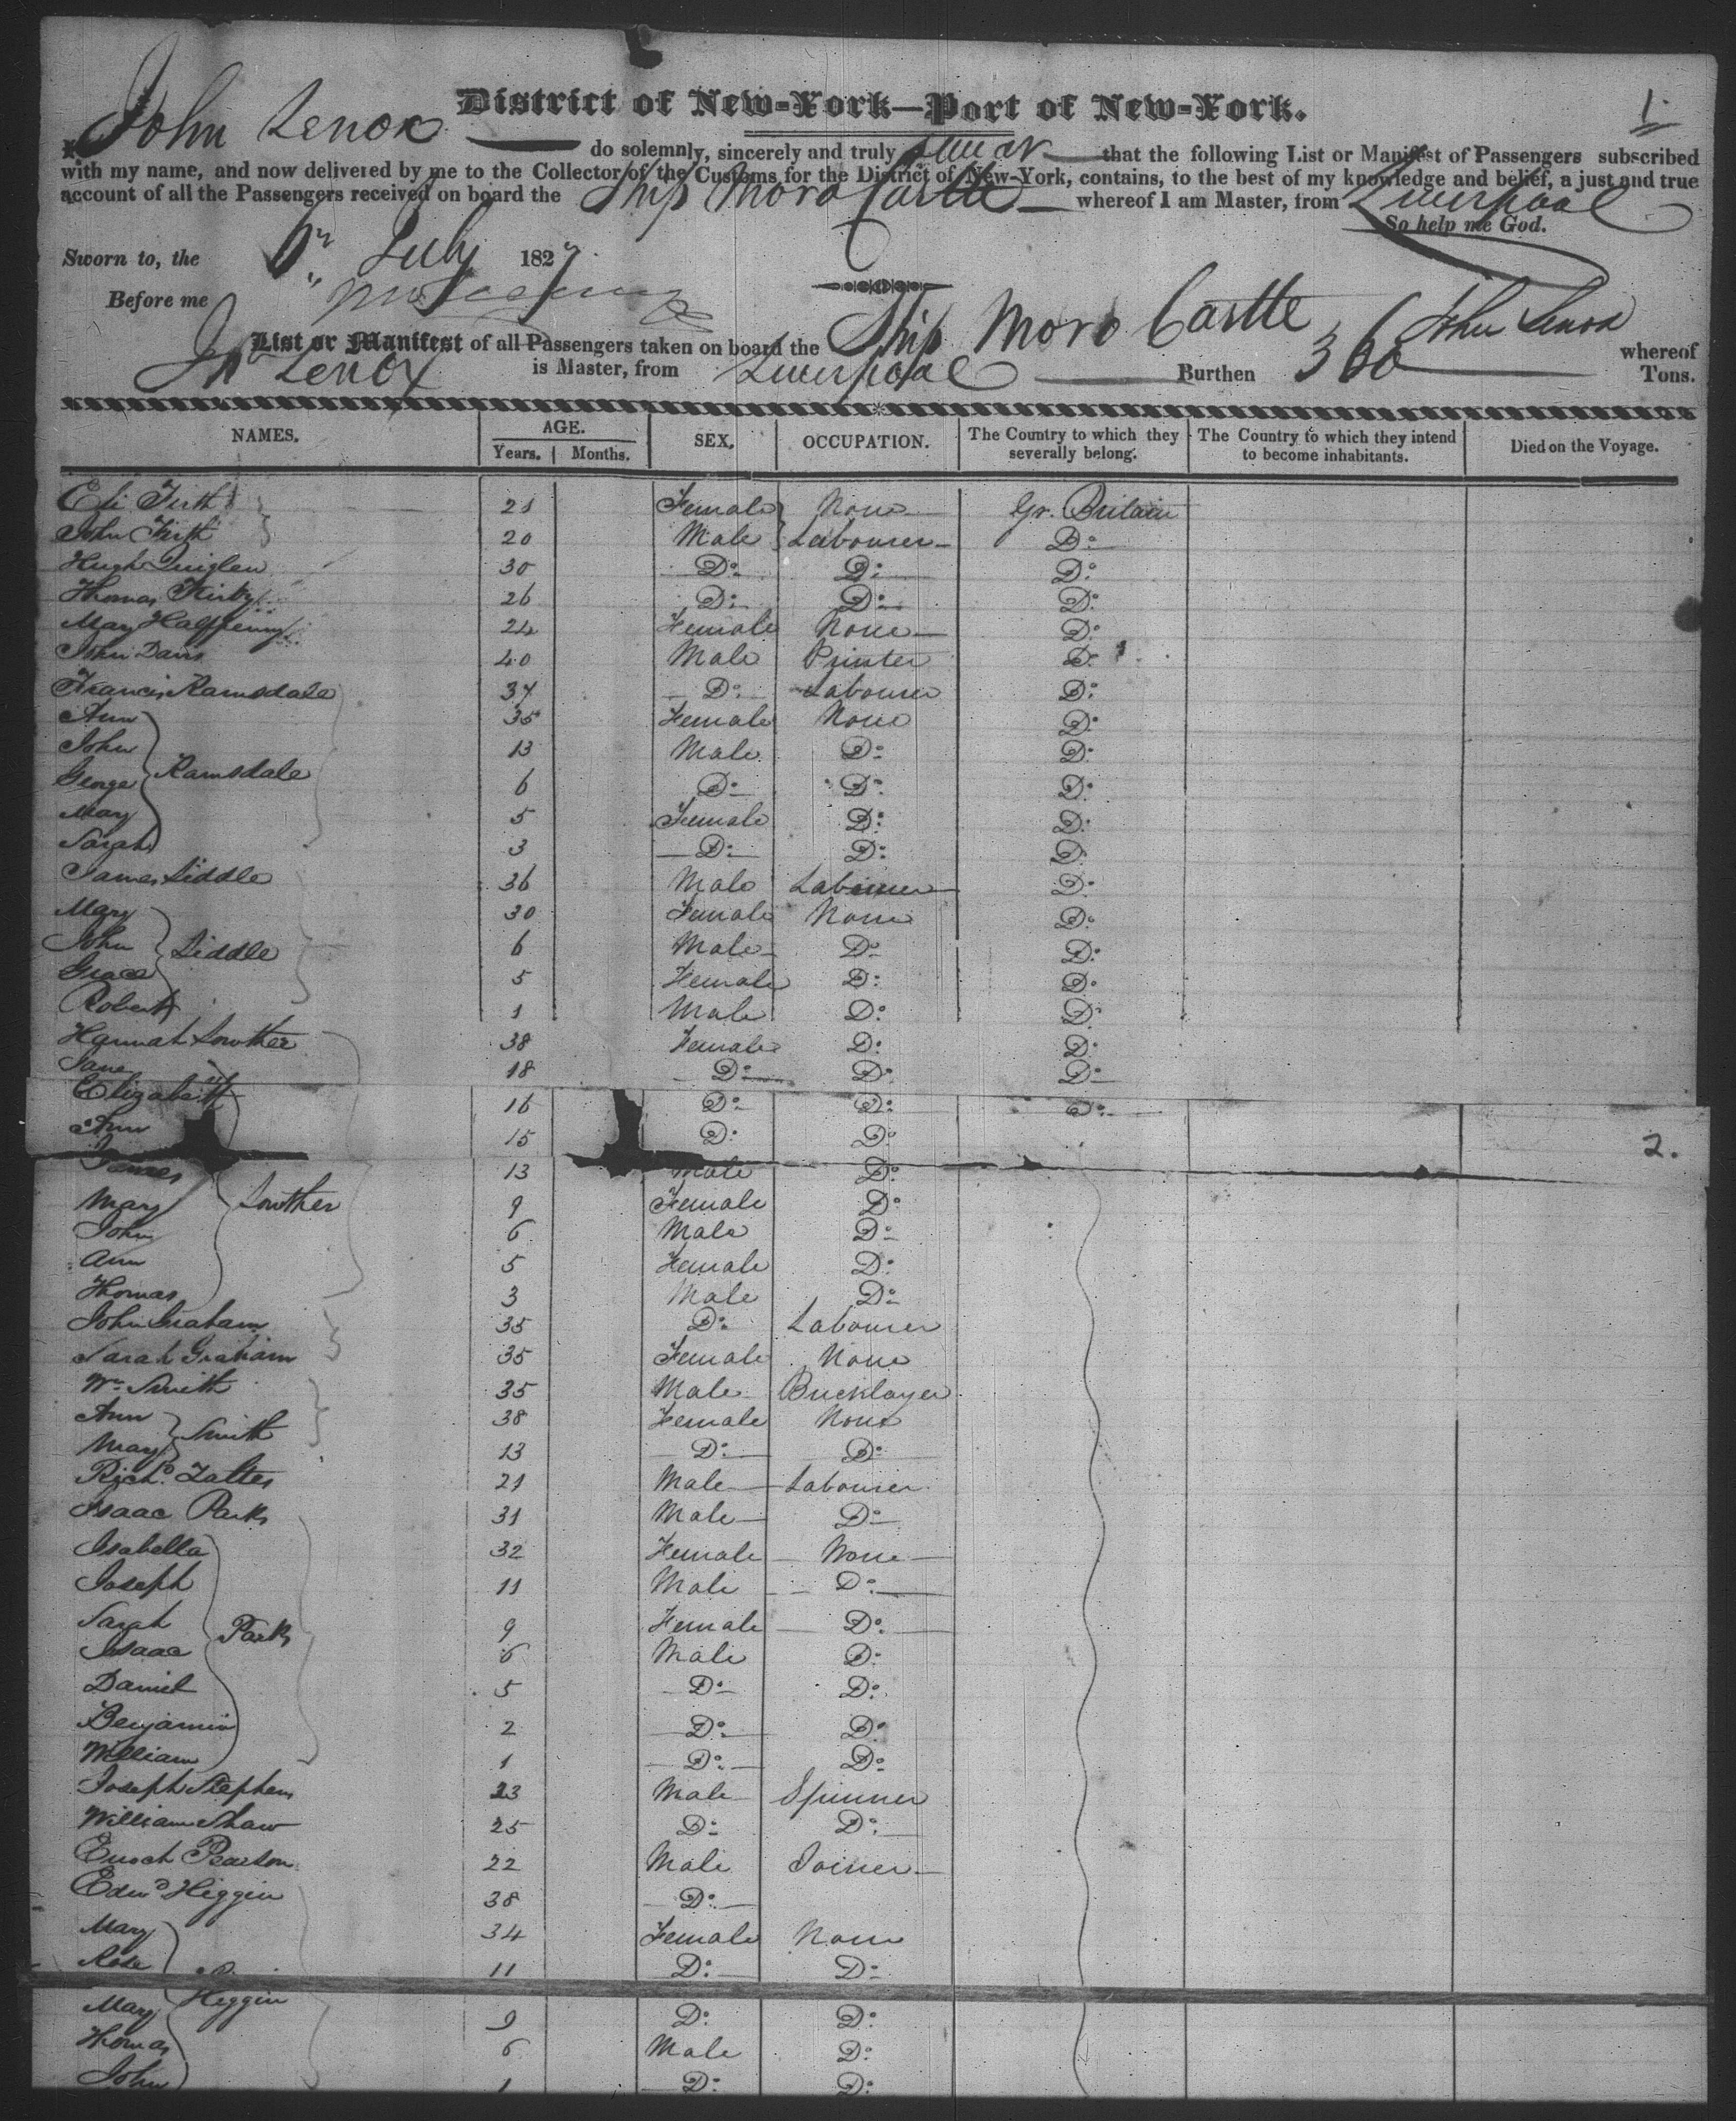 1.
District of New-York—Port of New-York.
John Lenox do solemnly, sincerely and truly swear that the following List or Manifest of Passengers subscribed
with my name, and now delivered by me to the Collector of the Customs for the District of New-York, contains, to the best of my knowledge and belief, a just and true
account of all the Passengers received on board the Ship Moro Castle whereof I am Master, from Liverpool
So help me God.
Sworn to, the 6th July 1827
Before me
John Lenox
List or Manifest of all Passengers taken on board the Ship Moro Castle whereof
Jno Lenox is Master, from Liverpool Burthen 360 Tons.
NAMES. AGE. SEX. OCCUPATION. The Country to which they severally belong. The Country to which they intend to become inhabitants. Died on the Voyage.
Years. Months.
Firth 21 Female None Gr. Britain
John Firth 20 Male Labourer Do
Hugh Quiglen 30 Do Do Do
Thomas Kirby 26 Do Do Do
Mary Halfpenny 24 Female None Do
John Davis 40 Male Printer Do
Francis Ramsdale 37 Do Labourer Do
Ann 35 Female None Do
John 13 Male Do Do
Ramsdale
George 6 Do Do Do
Mary 5 Female Do Do
Sarah 3 Do Do Do
James Liddle 36 Male Labourer Do
Mary 30 Female None Do
John Liddle 6 Male Do Do
Grace 5 Female Do Do
Robert 1 Male Do Do
Hannah Lowther 38 Female Do Do
Jane 18 Do Do Do
Elizabeth 16 Do Do Do
Ann 15 Do Do
2.
James 13 Male Do
Mary Lowther 9 Female Do
John 6 Male Do
Ann 5 Female Do
Thomas 3 Male Do
John Graham 35 Do Labourer
Sarah Graham 35 Female None
Wm Smith 35 Male Bricklayer
Ann 38 Female None
Smith
Mary 13 Do Do
Richd 21 Male Labourer
Isaac Park 31 Male Do
Isabella 32 Female None
Joseph 11 Male Do
Sarah Park 9 Female Do
Isaac 6 Male Do
Daniel 5 Do Do
Benjamin 2 Do Do
William 1 Do Do
Joseph Stephens 23 Male Spinner
William Shaw 25 Do Do
Enoch Pearson 22 Male Joiner
Edwd Higgin 38 Do
Mary 34 Female None
Rose 11 Do Do
Higgin
Mary 9 Do Do
Thomas 6 Male Do
John 1 Do Do